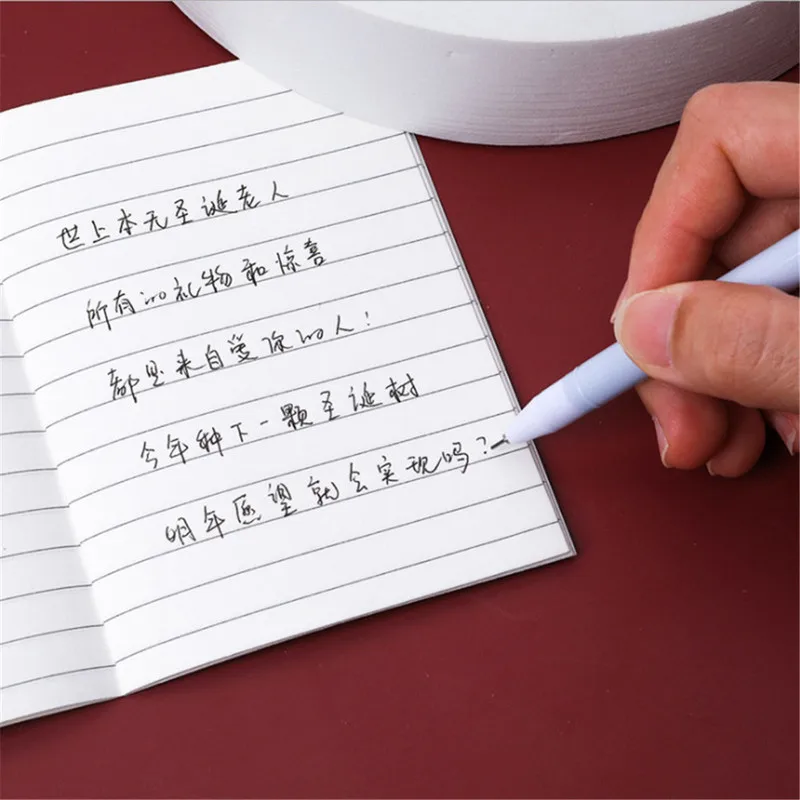 世上本无圣诞老人
所有的礼物和惊喜
都是来自爱你的人!
今年种下一颗圣诞树
明年愿望就会实现吗?